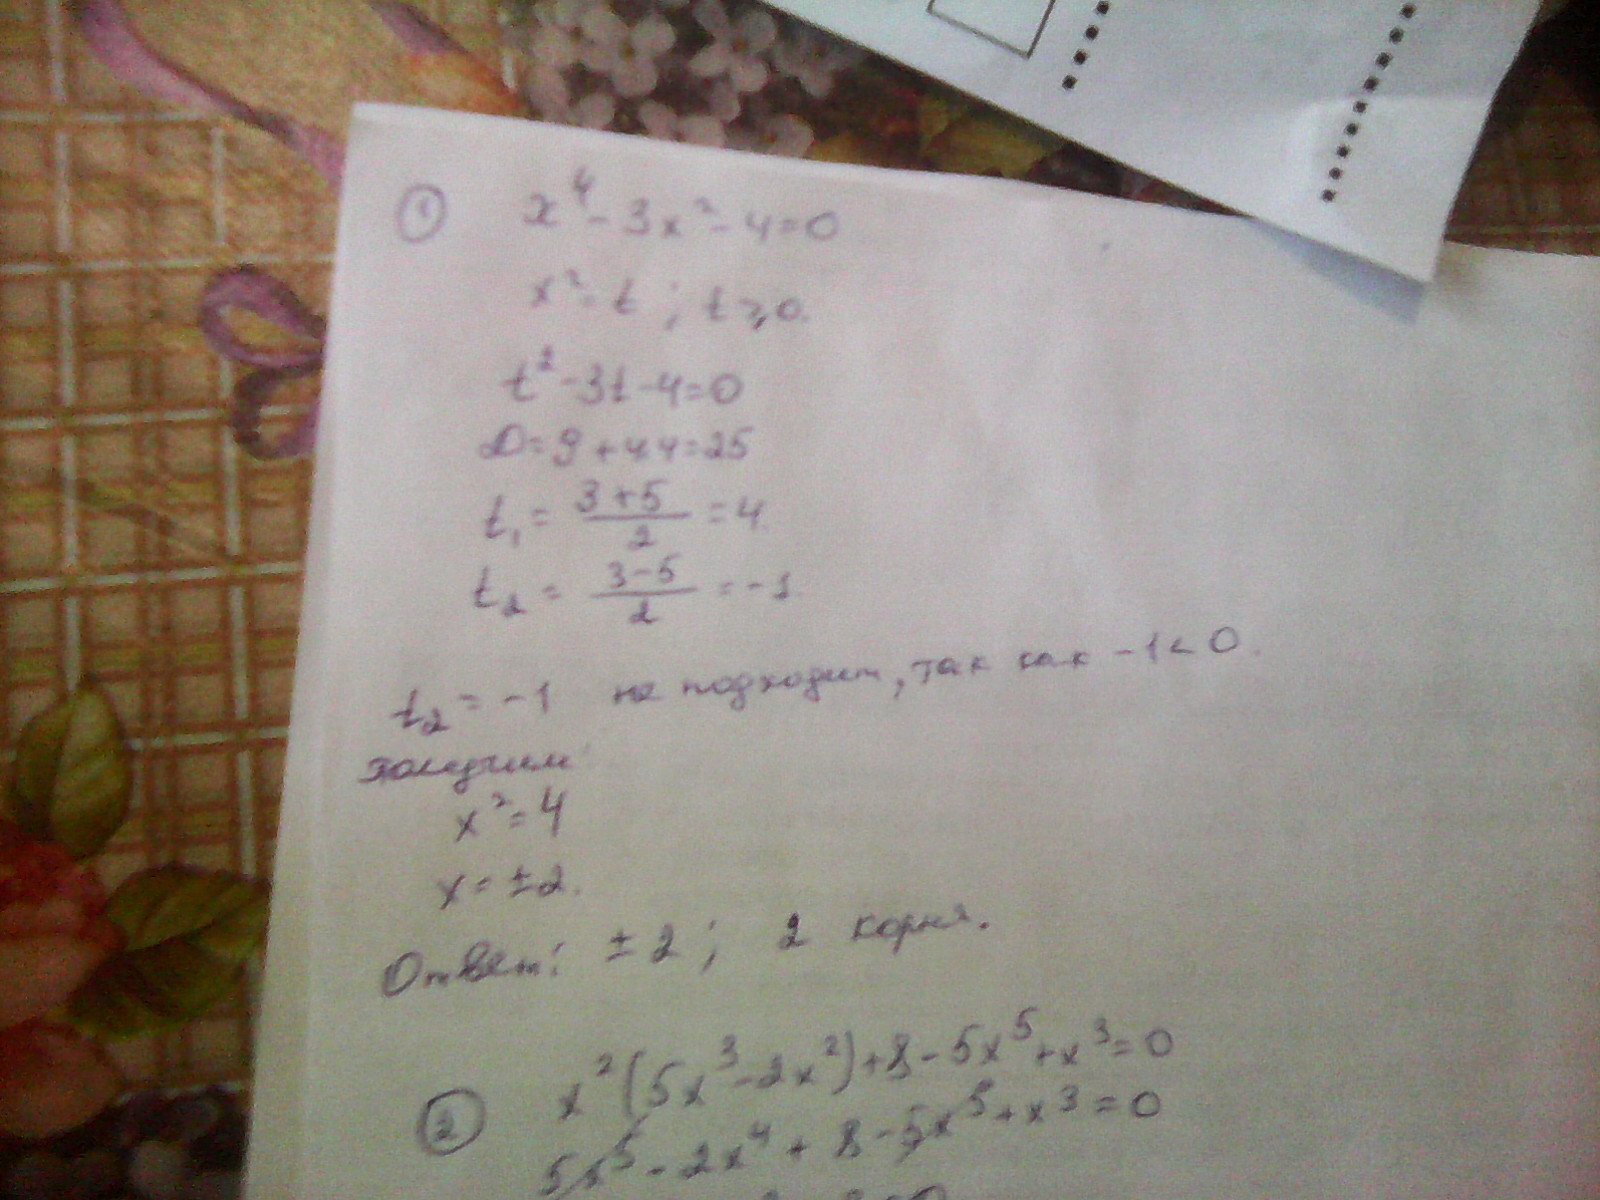 ① x⁴-3x²-4=0
x²=t; t≥0.
t²-3t-4=0
D=9+4·4=25
t₁ = (3+5)/2 = 4.
t₂ = (3-5)/2 = -1.
t₂ = -1 не подходит, так как -1<0.
Получим:
x²=4
x=±2.
Ответ: ±2; 2 корня.
② x²(5x³-2x²)+8-5x⁵+x³=0
5x⁵-2x⁴+8-5x⁵+x³=0